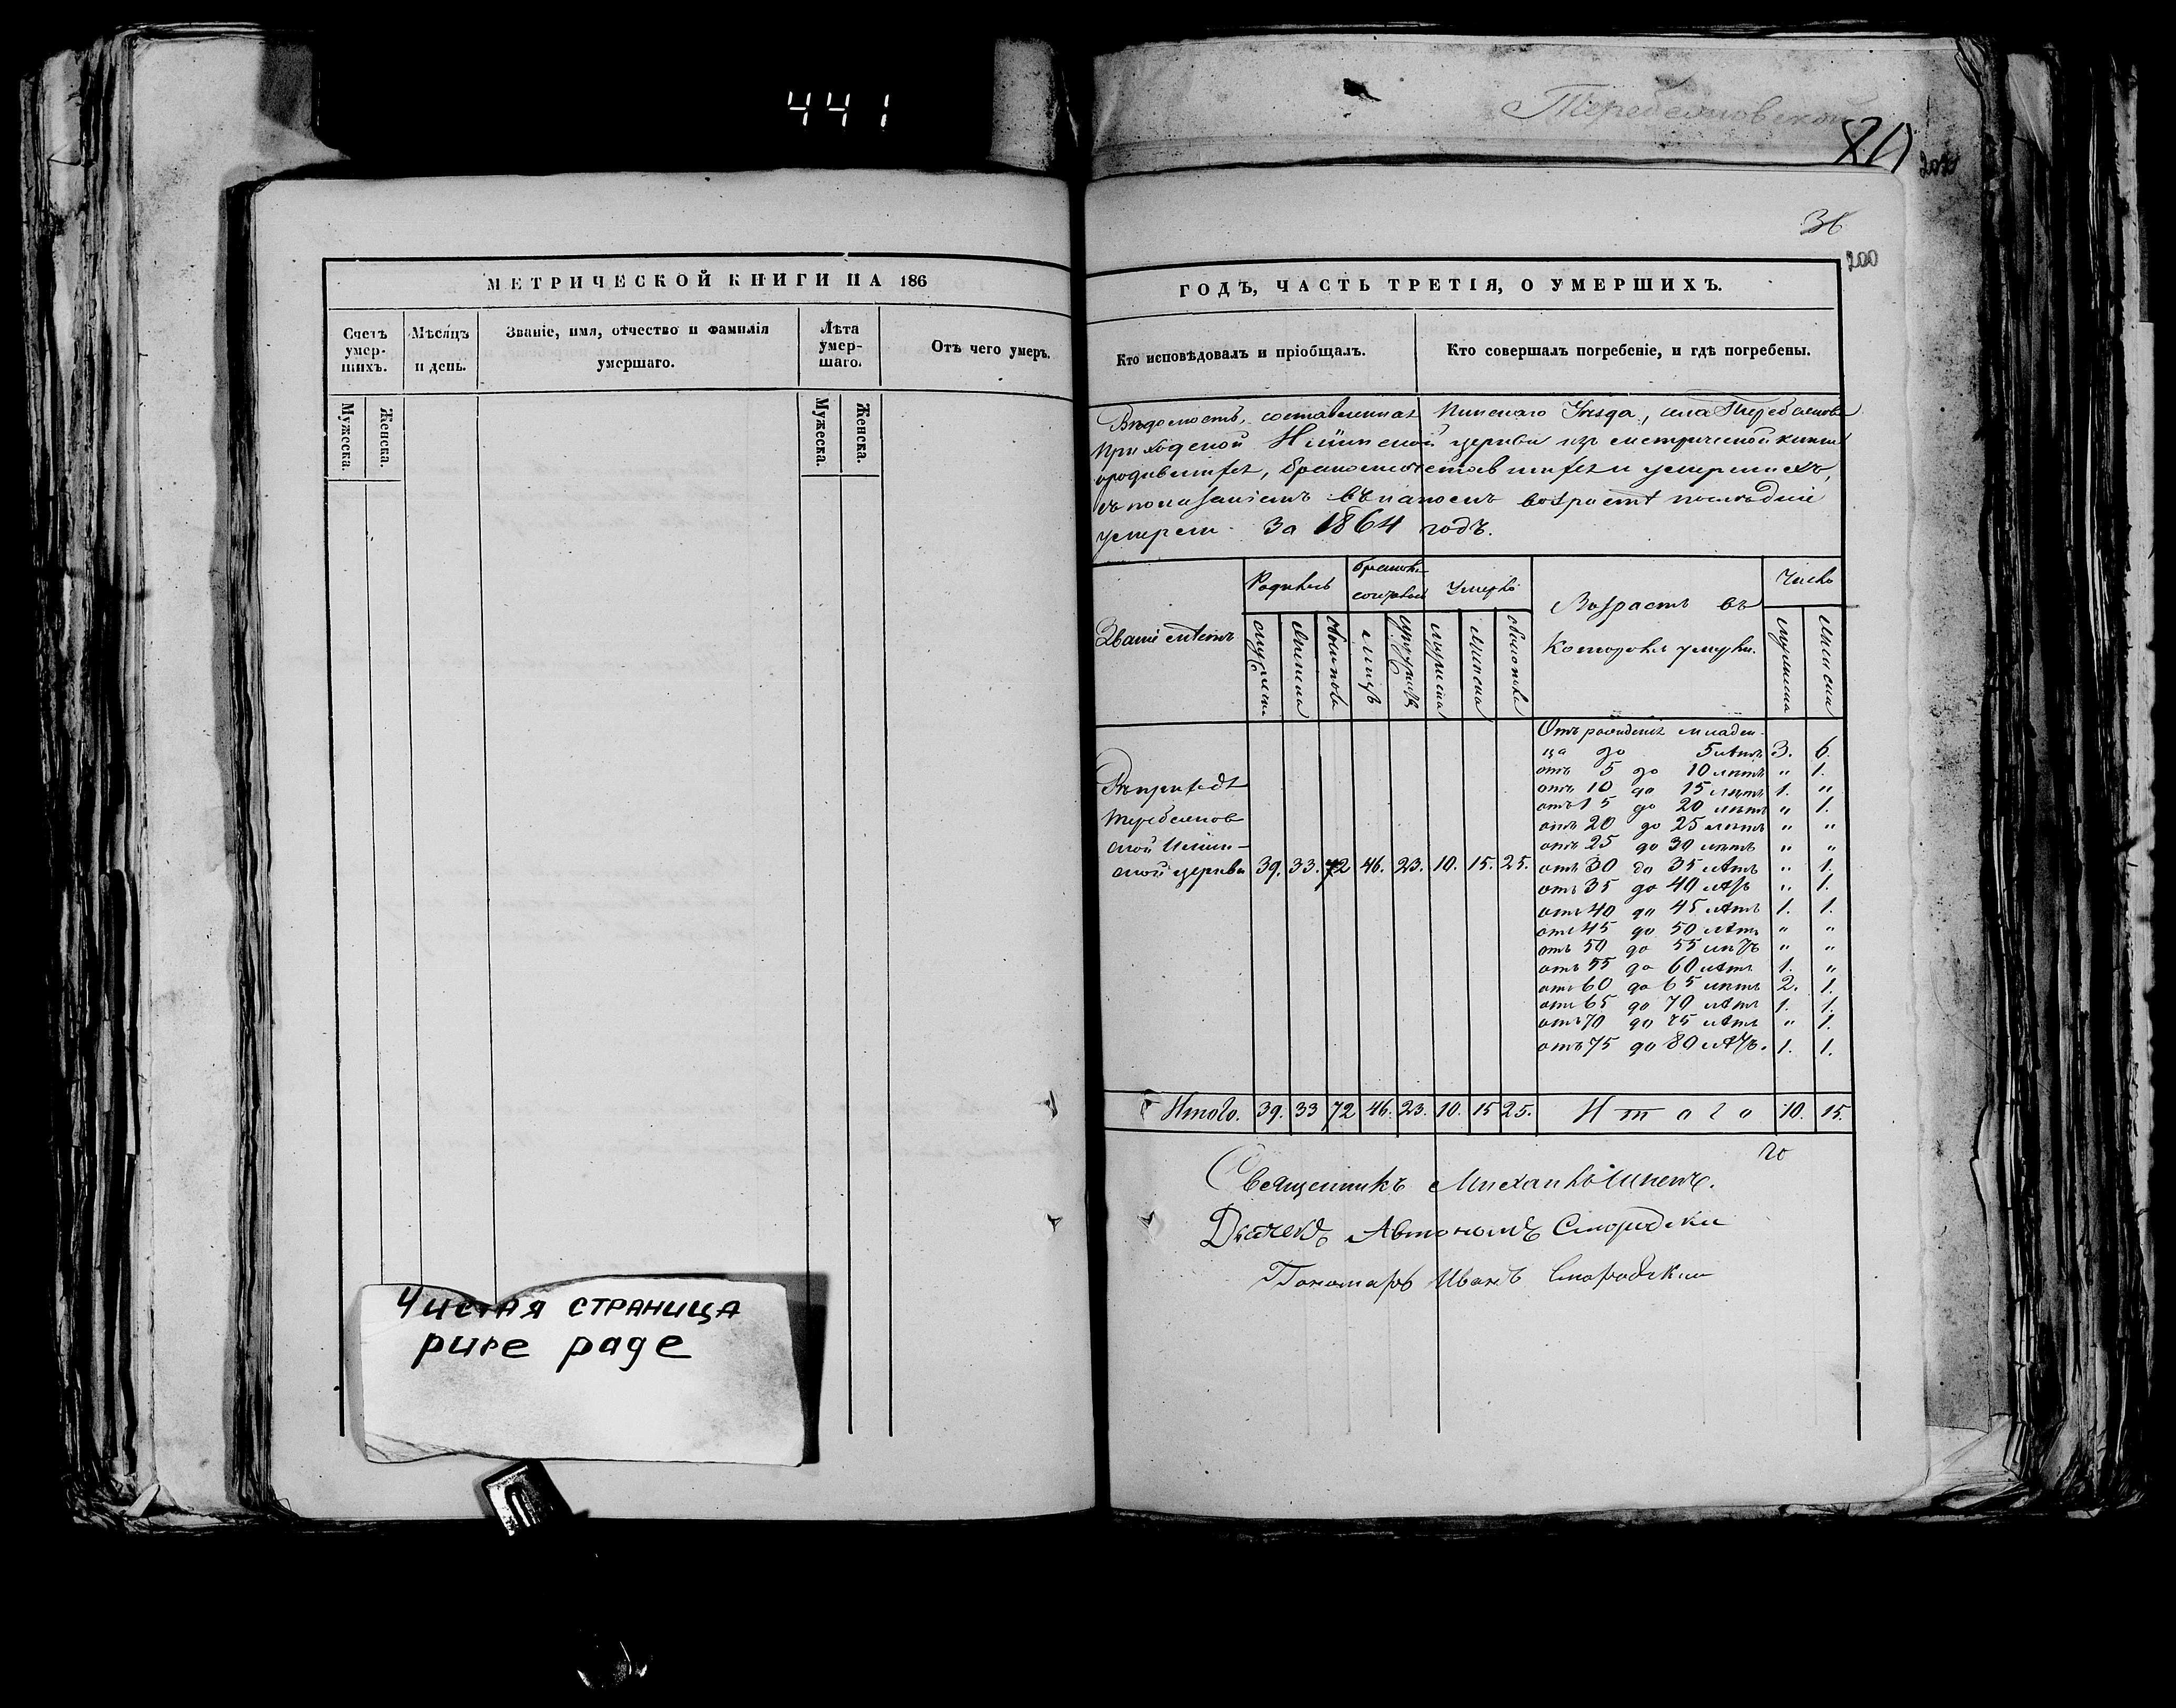 441
Теребежовской
202
36
200
МЕТРИЧЕСКОЙ КНИГИ НА 186
Счетъ умер- шихъ.
Мѣсяцъ и день.
Званіе, имя, отчество и фамилія умершаго.
Лѣта умер- шаго.
Отъ чего умеръ.
Мужеска.
Женска.
Мужеска.
Женска.
Чистая страница
pure page
ГОДЪ, ЧАСТЬ ТРЕТІЯ, О УМЕРШИХЪ.
Кто исповѣдовалъ и пріобщалъ.
Кто совершалъ погребеніе, и гдѣ погребены.
Вѣдомость, составленная Пинскаго Уѣзда, села
приходской Ильинской церкви изъ метрической книги
о умершихъ,
съ показаніемъ въ какомъ возрастѣ послѣдніе
умерли за 1864 годъ.
Званіе мѣстъ
Родилось
Умерло
Возрастъ въ
которомъ умерли.
Число
мужеска
женска
обоего пола
лицъ
мужеска
женска
обоего пола
мужеска
женска
Въ приходѣ
Ильин-
ской церкви 39. 33. 72 46. 23. 10. 15. 25.
Отъ рожденія младен-
ца до 5 лѣтъ 3. 6.
отъ 5 до 10 лѣтъ " 1.
отъ 10 до 15 лѣтъ 1. "
отъ 15 до 20 лѣтъ " 1.
отъ 20 до 25 лѣтъ " "
отъ 25 до 30 лѣтъ " "
отъ 30 до 35 лѣтъ " 1.
отъ 35 до 40 лѣтъ " 1.
отъ 40 до 45 лѣтъ 1. 1.
отъ 45 до 50 лѣтъ " "
отъ 50 до 55 лѣтъ " "
отъ 55 до 60 лѣтъ 1. "
отъ 60 до 65 лѣтъ 2. 1.
отъ 65 до 70 лѣтъ 1. 1.
отъ 70 до 75 лѣтъ " 1.
отъ 75 до 80 лѣтъ. 1. 1.
Итого. 39. 33 72 46. 23. 10. 15 25. Итого 10. 15.
Священникъ Михаилъ
Дьячекъ Автономъ Смородски
Пономарь Иванъ Смородски